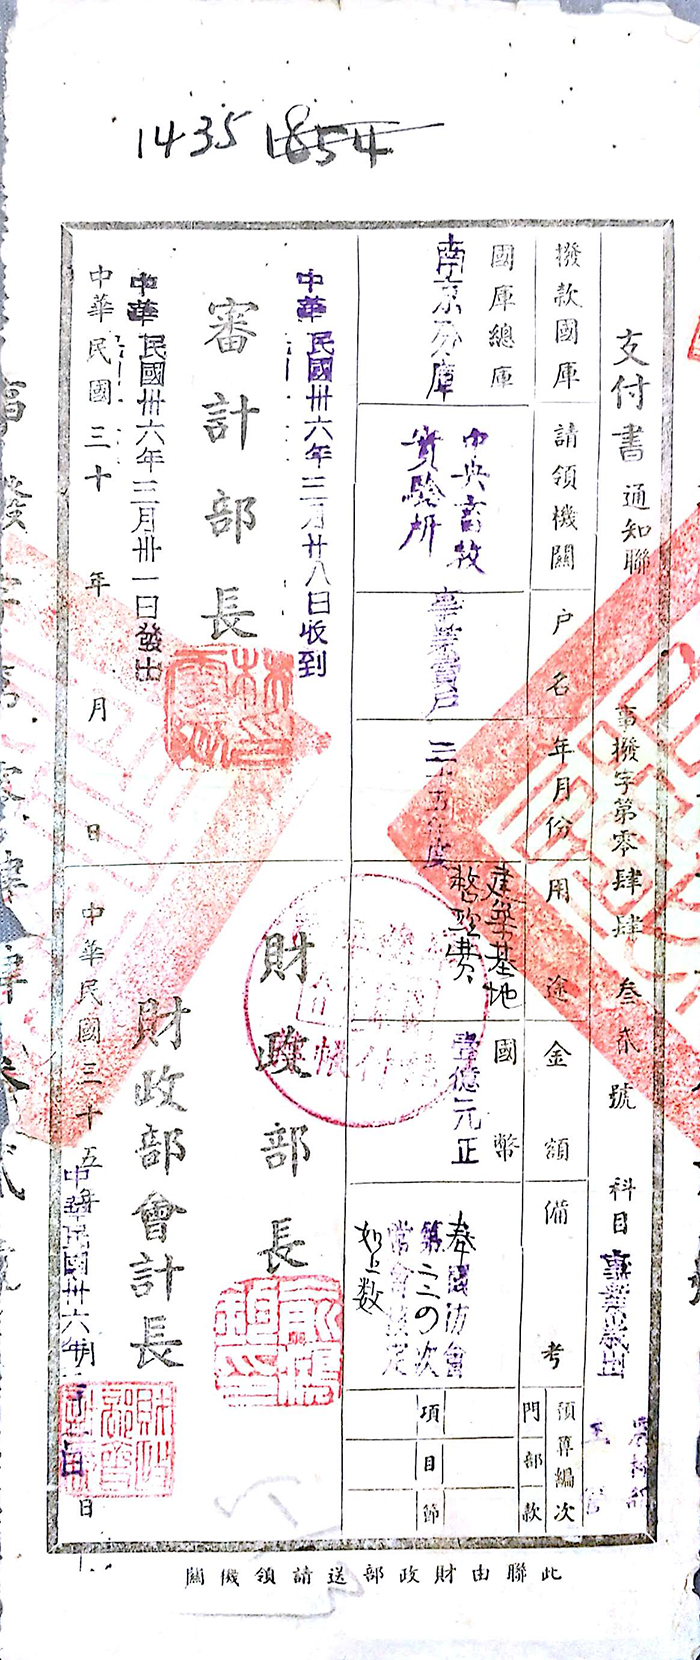 1435 1854
支付書通知聯
撥字第零肆肆叁貳號
科目 事業歲出
撥款國庫
國庫總庫
南京分庫
請領機關
中央畜牧
實驗所
户名
事業費户
年月份
三十五年度
用途
建築基地
整理費
金額
國幣
壹億元正
備考
奉國防會
第二三四次
常會議定
如上数
預算編次
門部款
項目節
中華民國卅六年三月廿八日收到
審計部長
中華民國卅六年三月卅一日發出
中華民國三十 年 月 日
財政部長
財政部會計長
中華民國三十五年 月 日
中華民國卅六年
此聯由財政部送請領機關